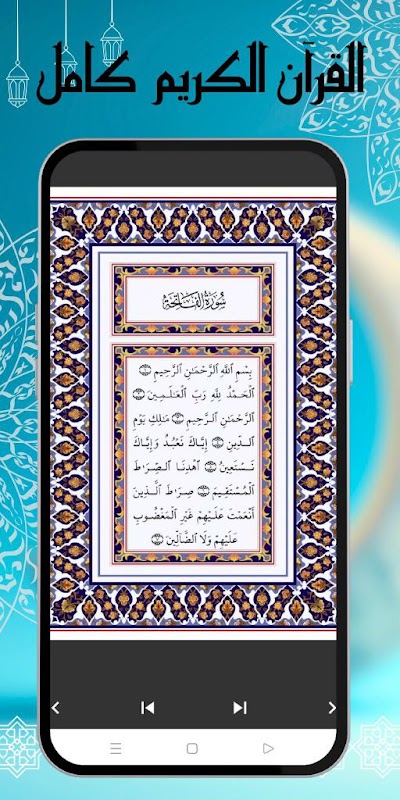 القرآن الكريم كامل
سُورَةُ الفَاتِحَةِ
بِسْمِ ٱللَّهِ ٱلرَّحْمَٰنِ ٱلرَّحِيمِ ۝
ٱلْحَمْدُ لِلَّهِ رَبِّ ٱلْعَٰلَمِينَ ۝
ٱلرَّحْمَٰنِ ٱلرَّحِيمِ ۝ مَٰلِكِ يَوْمِ
ٱلدِّينِ ۝ إِيَّاكَ نَعْبُدُ وَإِيَّاكَ
نَسْتَعِينُ ۝ ٱهْدِنَا ٱلصِّرَٰطَ
ٱلْمُسْتَقِيمَ ۝ صِرَٰطَ ٱلَّذِينَ
أَنْعَمْتَ عَلَيْهِمْ غَيْرِ ٱلْمَغْضُوبِ
عَلَيْهِمْ وَلَا ٱلضَّآلِّينَ ۝